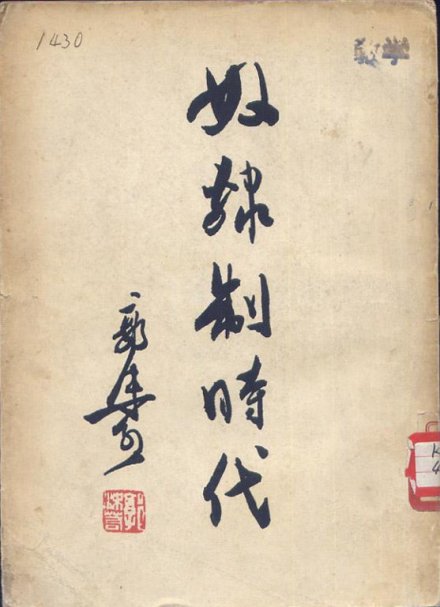 1430
教学
奴隸制時代
郭沫若
郭沫若
K
4